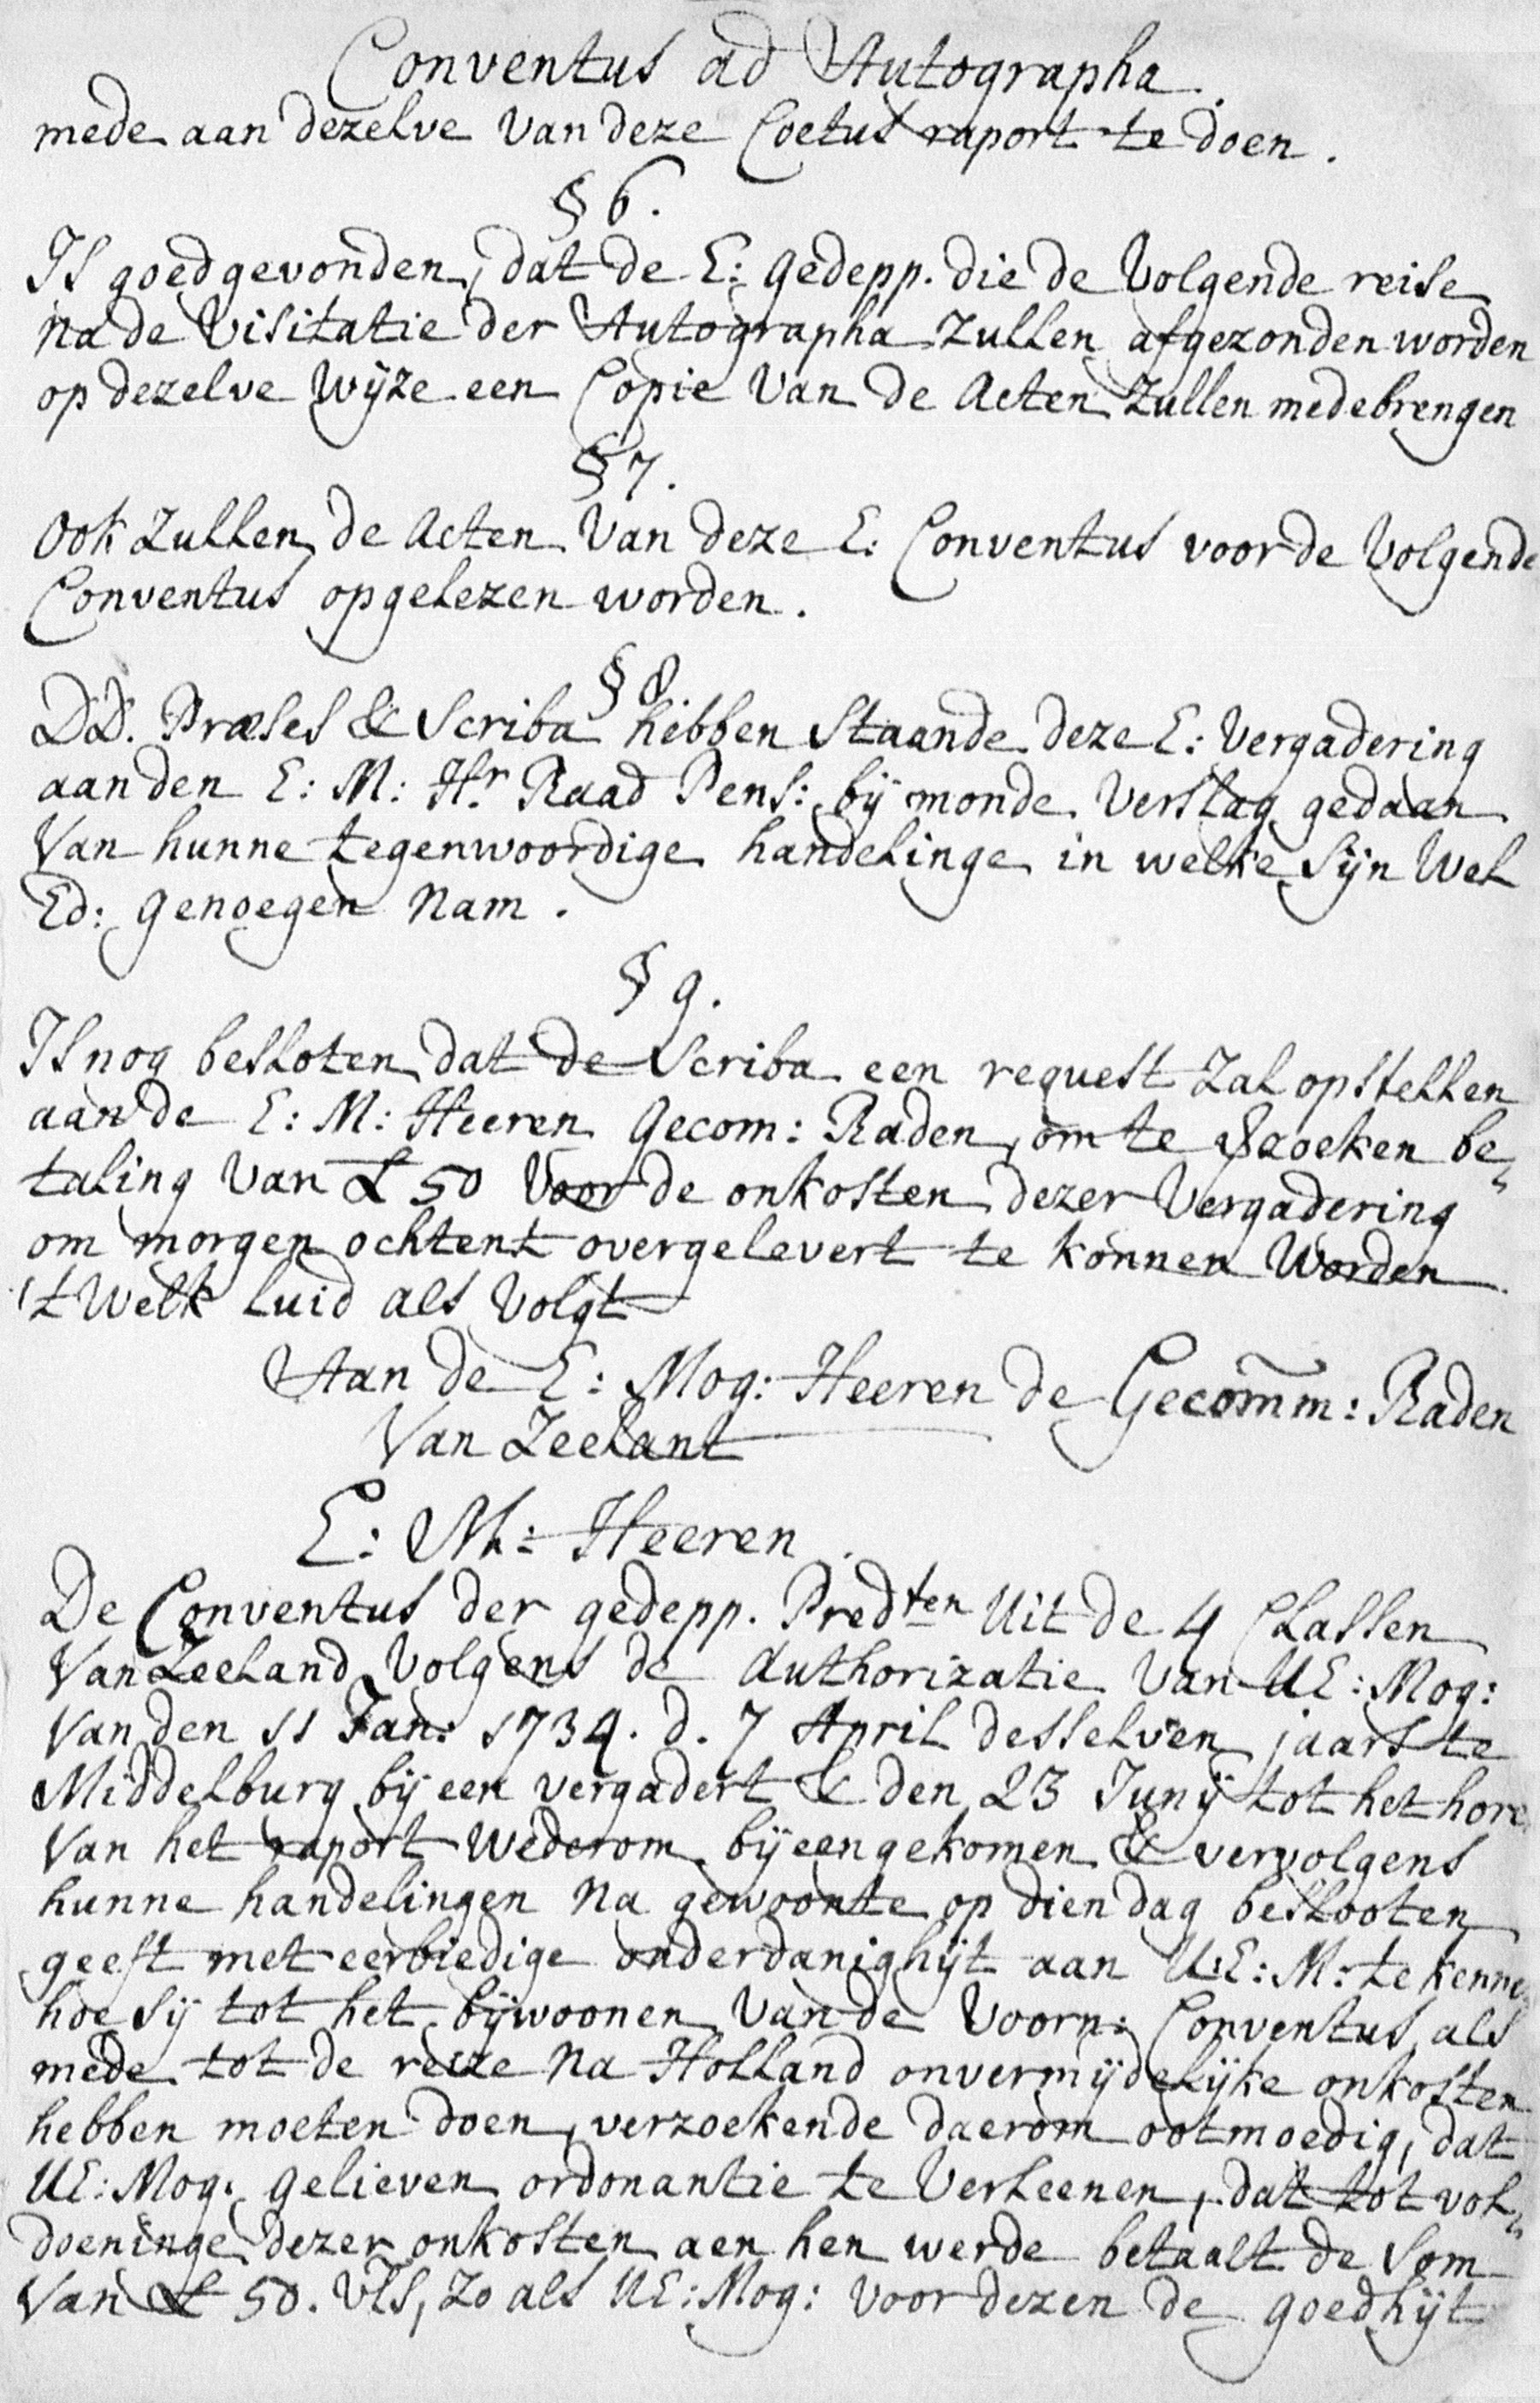 Conventus ad Autographa.
mede aan dezelve van deze Coetus raport te doen.
§ 6.
Is goedgevonden, dat de E: gedepp. die de volgende reise
na de visitatie der Autographa zullen afgezonden worden
op dezelve wijze een Copie van de Acten zullen medebrengen
§ 7.
Ook zullen de Acten van deze E: Conventus voor de volgende
Conventus opgelezen worden.
§ 8
DD. Præses & Scriba hebben staande deze E: vergadering
aan den E: M: Hr Raad Pens: bij monde verslag gedaan
van hunne tegenwoordige handelinge in welke sijn Wel
Ed: genoegen nam.
§ 9.
Is nog besloten dat de Scriba een request zal opstellen
aan de E: M: Heeren Gecom: Raden, om te be„
taling van £ 50 voor de onkosten dezer vergadering
om morgen ochtent overgelevert te konnen worden
't welk luid als volgt
Aan de E: Mog: Heeren de Gecomm: Raden
van Zeelant
E: M: Heeren.
De Conventus der gedepp. Predten uit de 4 Classen
van Zeeland volgens de Authorizatie van UE: Mog:
van den 11 Jan: 1734. d. 7 April desselven jaars te
Middelburg bij een vergadert & den 23 Junij tot het hore
van het raport wederom bijeengekomen & vervolgens
hunne handelingen na gewoonte op dien dag beslooten
geeft met eerbiedige onderdanighijt aan U:E: M: te kenne
hoe sij tot het bijwoonen van de voorn: Conventus, als
mede tot de reize na Holland onvermijdelijke onkosten
hebben moeten doen, verzoekende daerom ootmoedig, dat
UE: Mog: gelieven ordonantie te verleenen, dat tot vol„
doeninge dezer onkosten aen hen werde betaalt de som
van £ 50. Vls, zo als UE: Mog: voor dezen de goedhijt